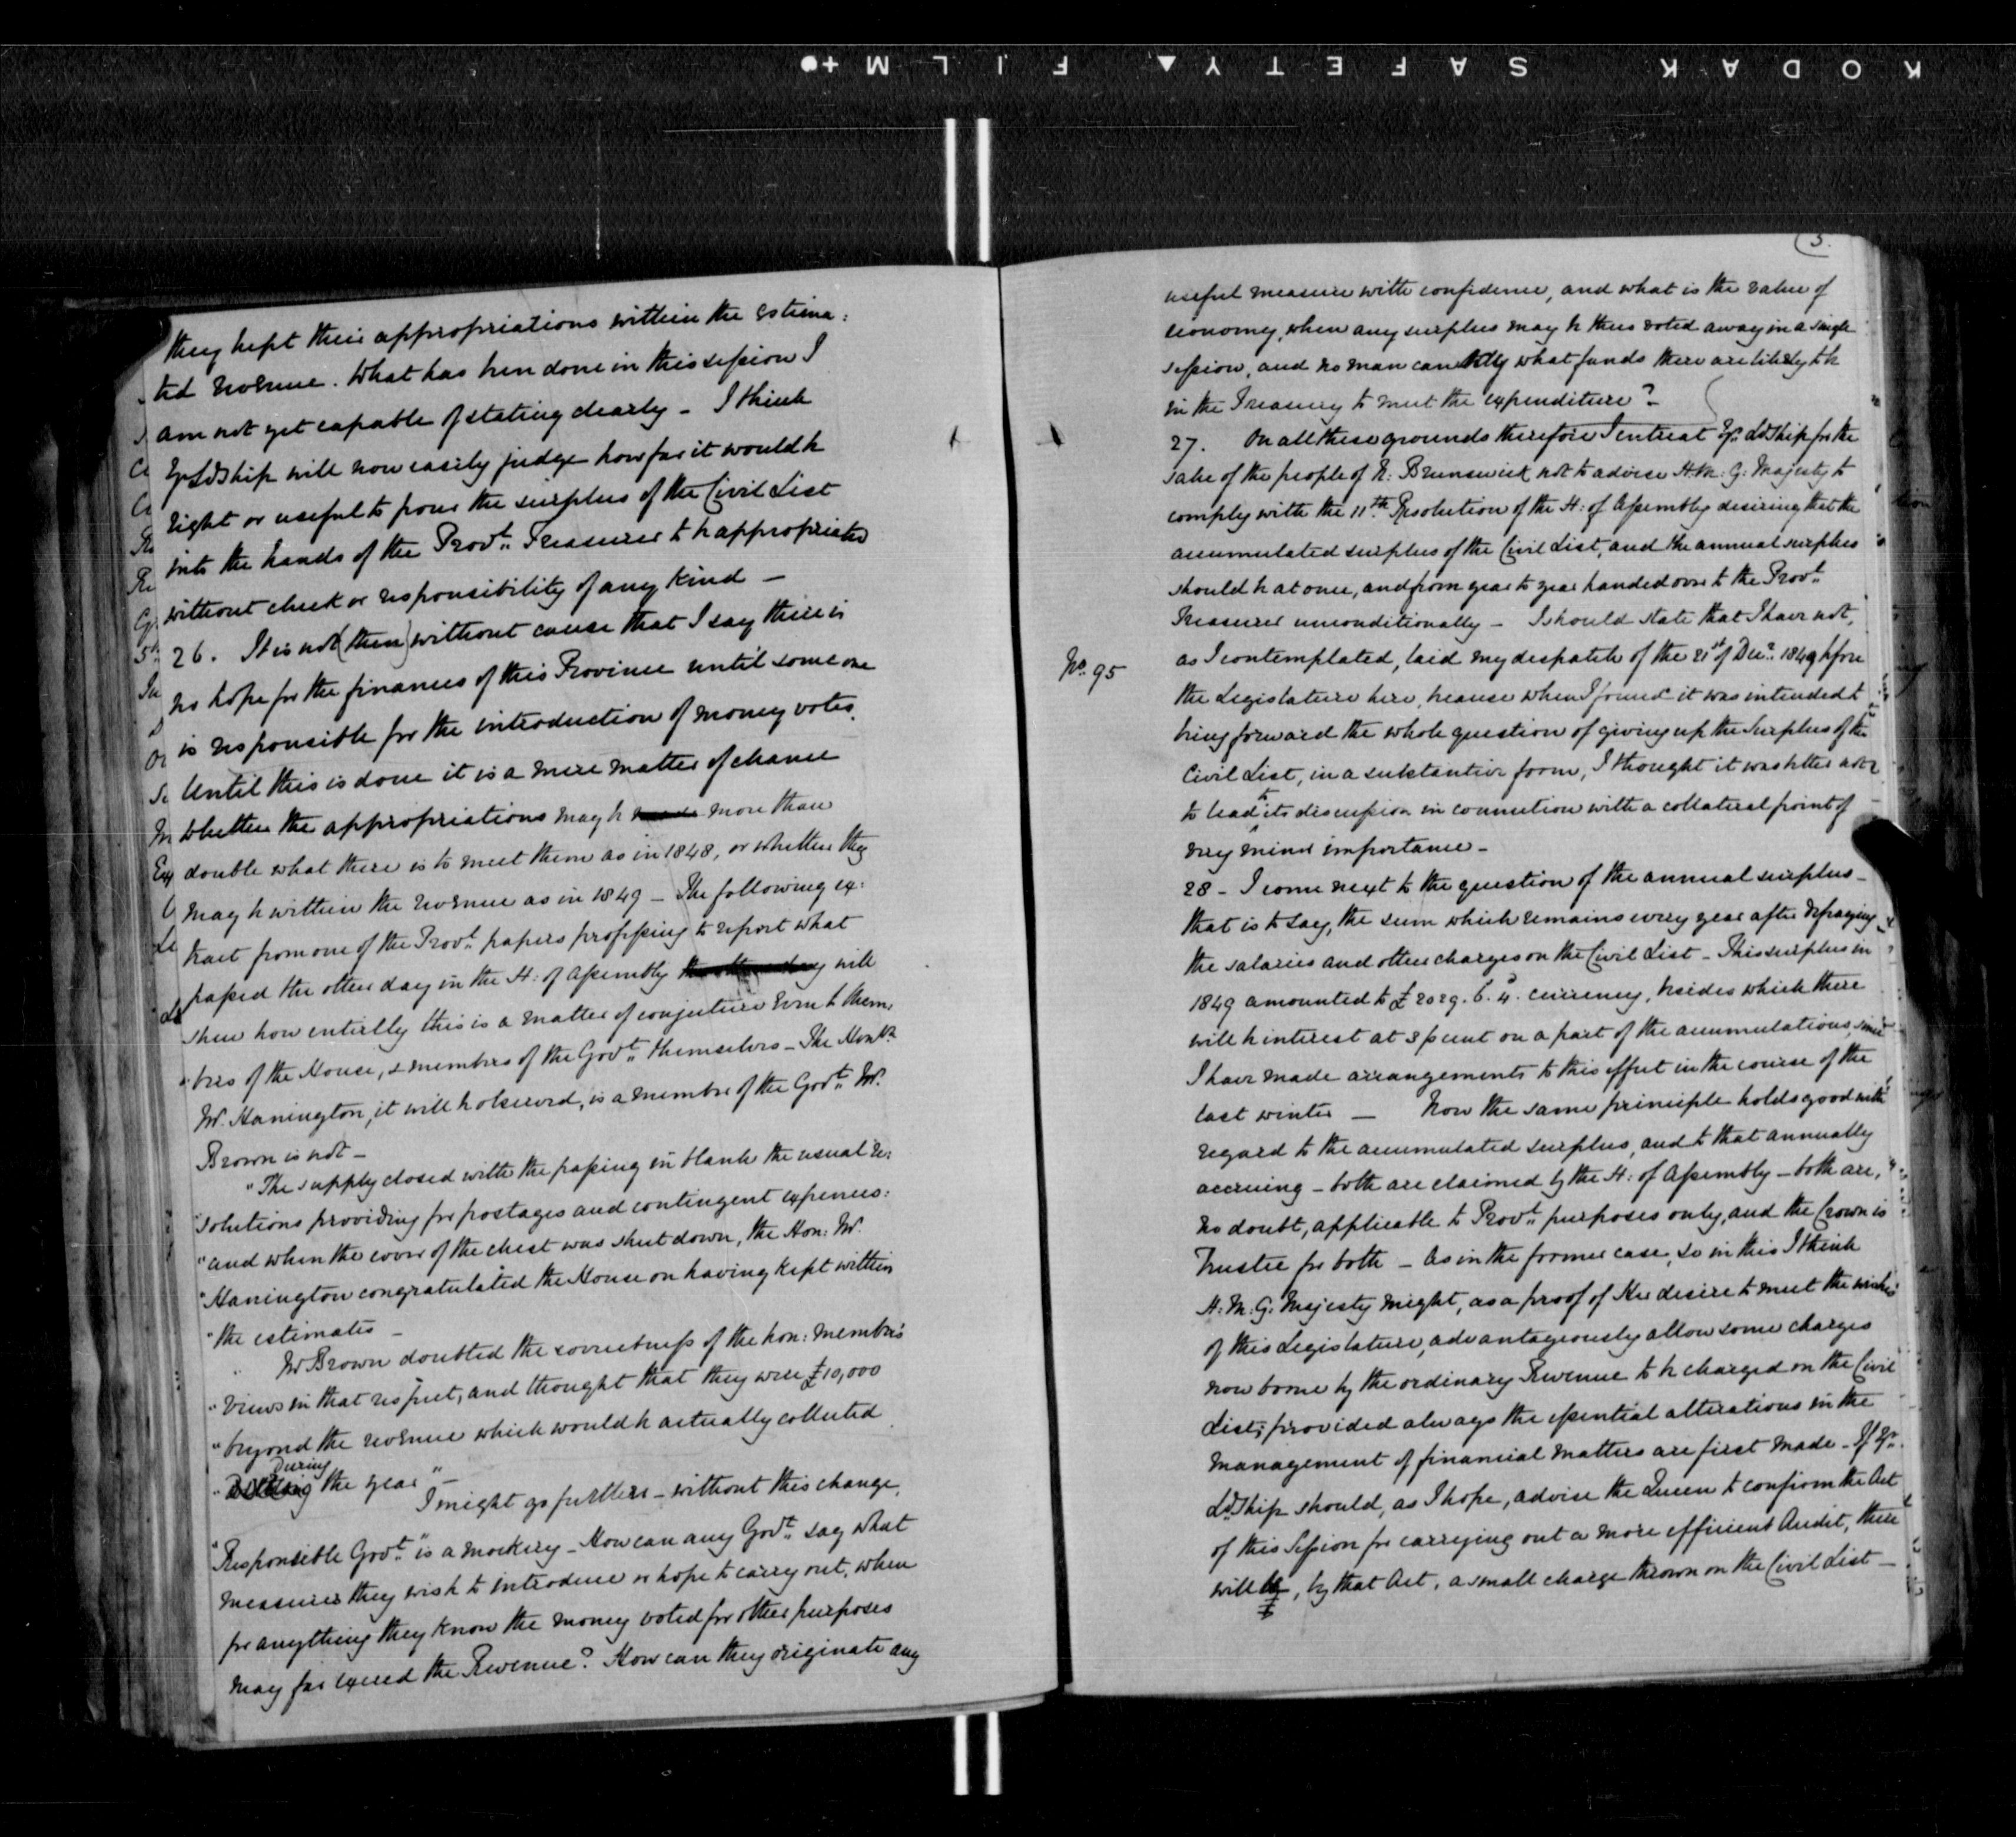 KODAK SAFETY FILM
they kept their appropriations within the estima:
ted revenue. What has been done in this session I
am not yet capable of stating clearly - I think
Yr Ldship will now easily judge how far it would be
right or useful to pour the surplus of the Civil List
into the hands of the Provl. Treasurer to be appropriated
without check or responsibility of any kind -
26. It is not (then) without cause that I say there is
no hope for the finances of this Province until some one
is responsible for the introduction of money votes.
Until this is done it is a mere matter of chance
whether the appropriations may be made more than
double what there is to meet them as in 1848, or whether they
may be within the revenue as in 1849 - The following ex:
tract from one of the Provl. papers professing to report what
passed the other day in the H: of Assembly the other day will
shew how entirely this is a matter of conjecture even to mem,
"bers of the House, & members of the Govt. themselves - The Honble
Mr. Hanington, it will be observed, is a member of the Govt. Mr.
Brown is not -
"The supply closed with the passing in blank the usual re:
"solutions providing for postages and contingent expenses:
"and when the cover of the chest was shut down, the Hon: Mr.
"Hanington congratulated the House on having kept within
"the estimates -
" Mr Brown doubted the correctness of the hon: member's
"views in that respect, and thought that they were £10,000
"beyond the revenue which would be actually collected
During
" the year" -
I might go further - without this change,
"Responsible Govt." is a mockery - How can any Govt. say what
measures they wish to introduce or hope to carry out, when
for anything they know the money voted for other purposes
may far exceed the Revenue? How can they originate any
(3.
useful measure with confidence, and what is the value of
economy, when any surplus may be thus voted away in a single
session, and no man can tell what funds there are likely to be
in the Treasury to meet the expenditure? -
27. On all these grounds therefore I entreat Yr. Ldship for the
sake of the people of N: Brunswick not to advise H.M: G: Majesty to
comply with the 11th. Resolution of the H: of Assembly desiring that the
accumulated surplus of the Civil List, and the annual surplus
should be at once, and from year to year handed over to the Provl.
Treasurer unconditionally - I should state that I have not,
No. 95
as I contemplated, laid my despatch of the 21st of Decr. 1849 before
the Legislature here, because when I found it was intended to
bring forward the whole question of giving up the Surplus of the
Civil List, in a substantive form, I thought it was better not
to lead to its discussion in connection with a collateral point of
very minor importance -
28 - I come next to the question of the annual surplus -
that is to say, the sum which remains every year after defraying
the salaries and other charges on the Civil List - This surplus in
1849 amounted to £2029. 6. 4. currency, besides which there
will be interest at 3 p cent on a part of the accumulations, since
I have made arrangements to this effect in the course of the
last winter - Now the same principle holds good with
regard to the accumulated surplus, and to that annually
accruing - both are claimed by the H: of Assembly - both are,
no doubt, applicable to Provl. purposes only, and the Crown is
Trustee for both - As in the former case, so in this I think
H: M: G: Majesty might, as a proof of Her desire to meet the wishes
of this Legislature, advantageously allow some charges
now borne by the ordinary Revenue to be charged on the Civil
List; provided always the essential alterations in the
management of financial matters are first made - If Yr.
Ldship should, as I hope, advise the Queen to confirm the Act
of this Session for carrying out a more efficient Audit, there
will be, by that Act, a small charge thrown on the Civil List -